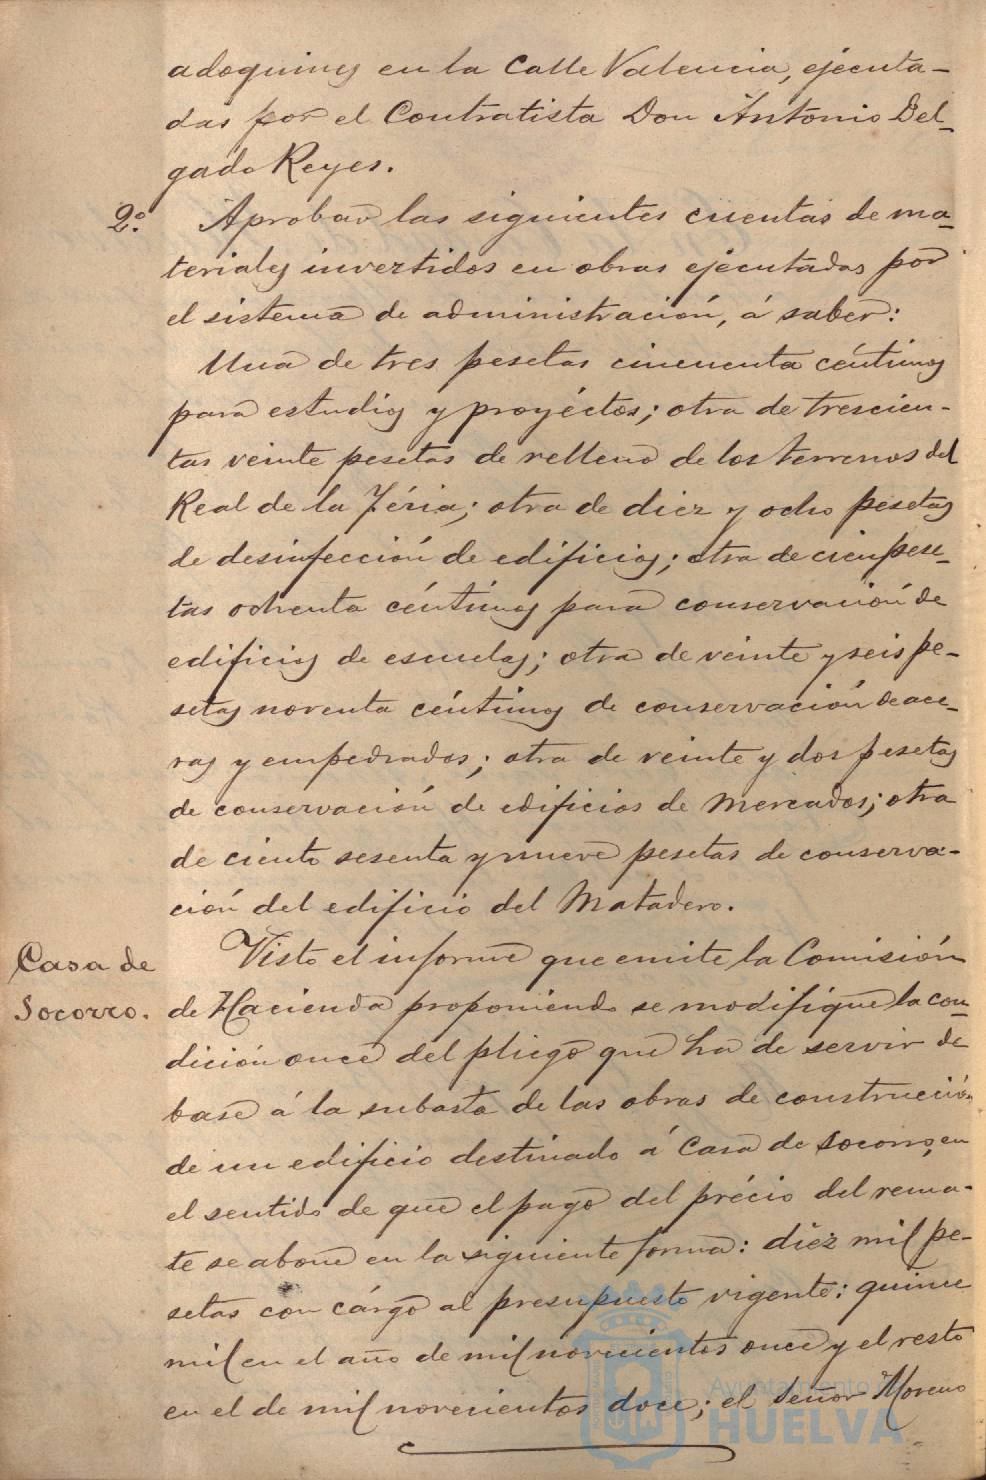 adoquines en la Calle Valencia, ejecuta-
das por el Contratista Don Antonio Del-
gado Reyes.
2º. Aprobar las siguientes cuentas de ma-
teriales invertidos en obras ejecutadas por
el sistema de administración, á saber:
Una de tres pesetas cincuenta céntimos
para estudios y proyéctos; otra de trescien-
tas veinte pesetas de relleno de los terrenos del
Real de la Féria; otra de diez y ocho pesetas
de desinfección de edificios; otra de cien pese-
tas ochenta céntimos para conservación de
edificios de escuelas; otra de veinte y seis pe-
setas noventa céntimos de conservación de ace-
ras y empedrados; otra de veinte y dos pesetas
de conservación de edificios de Mercados; otra
de ciento sesenta y nueve pesetas de conserva-
ción del edificio del Matadero.
Casa de
Socorro.
Visto el informe que emite la Comisión
de Hacienda proponiendo se modifique la con-
dición once del pliego que ha de servir de
base á la subasta de las obras de construcción
de un edificio destinado á Casa de Socorro, en
el sentido de que el pago del précio del rema-
te se abone en la siguiente forma: diez mil pe-
setas con cárgo al presupuesto vigente: quince
mil en el año de mil novecientos once y el resto
en el de mil novecientos doce; el Señor Moreno
Ayuntamiento de
HUELVA